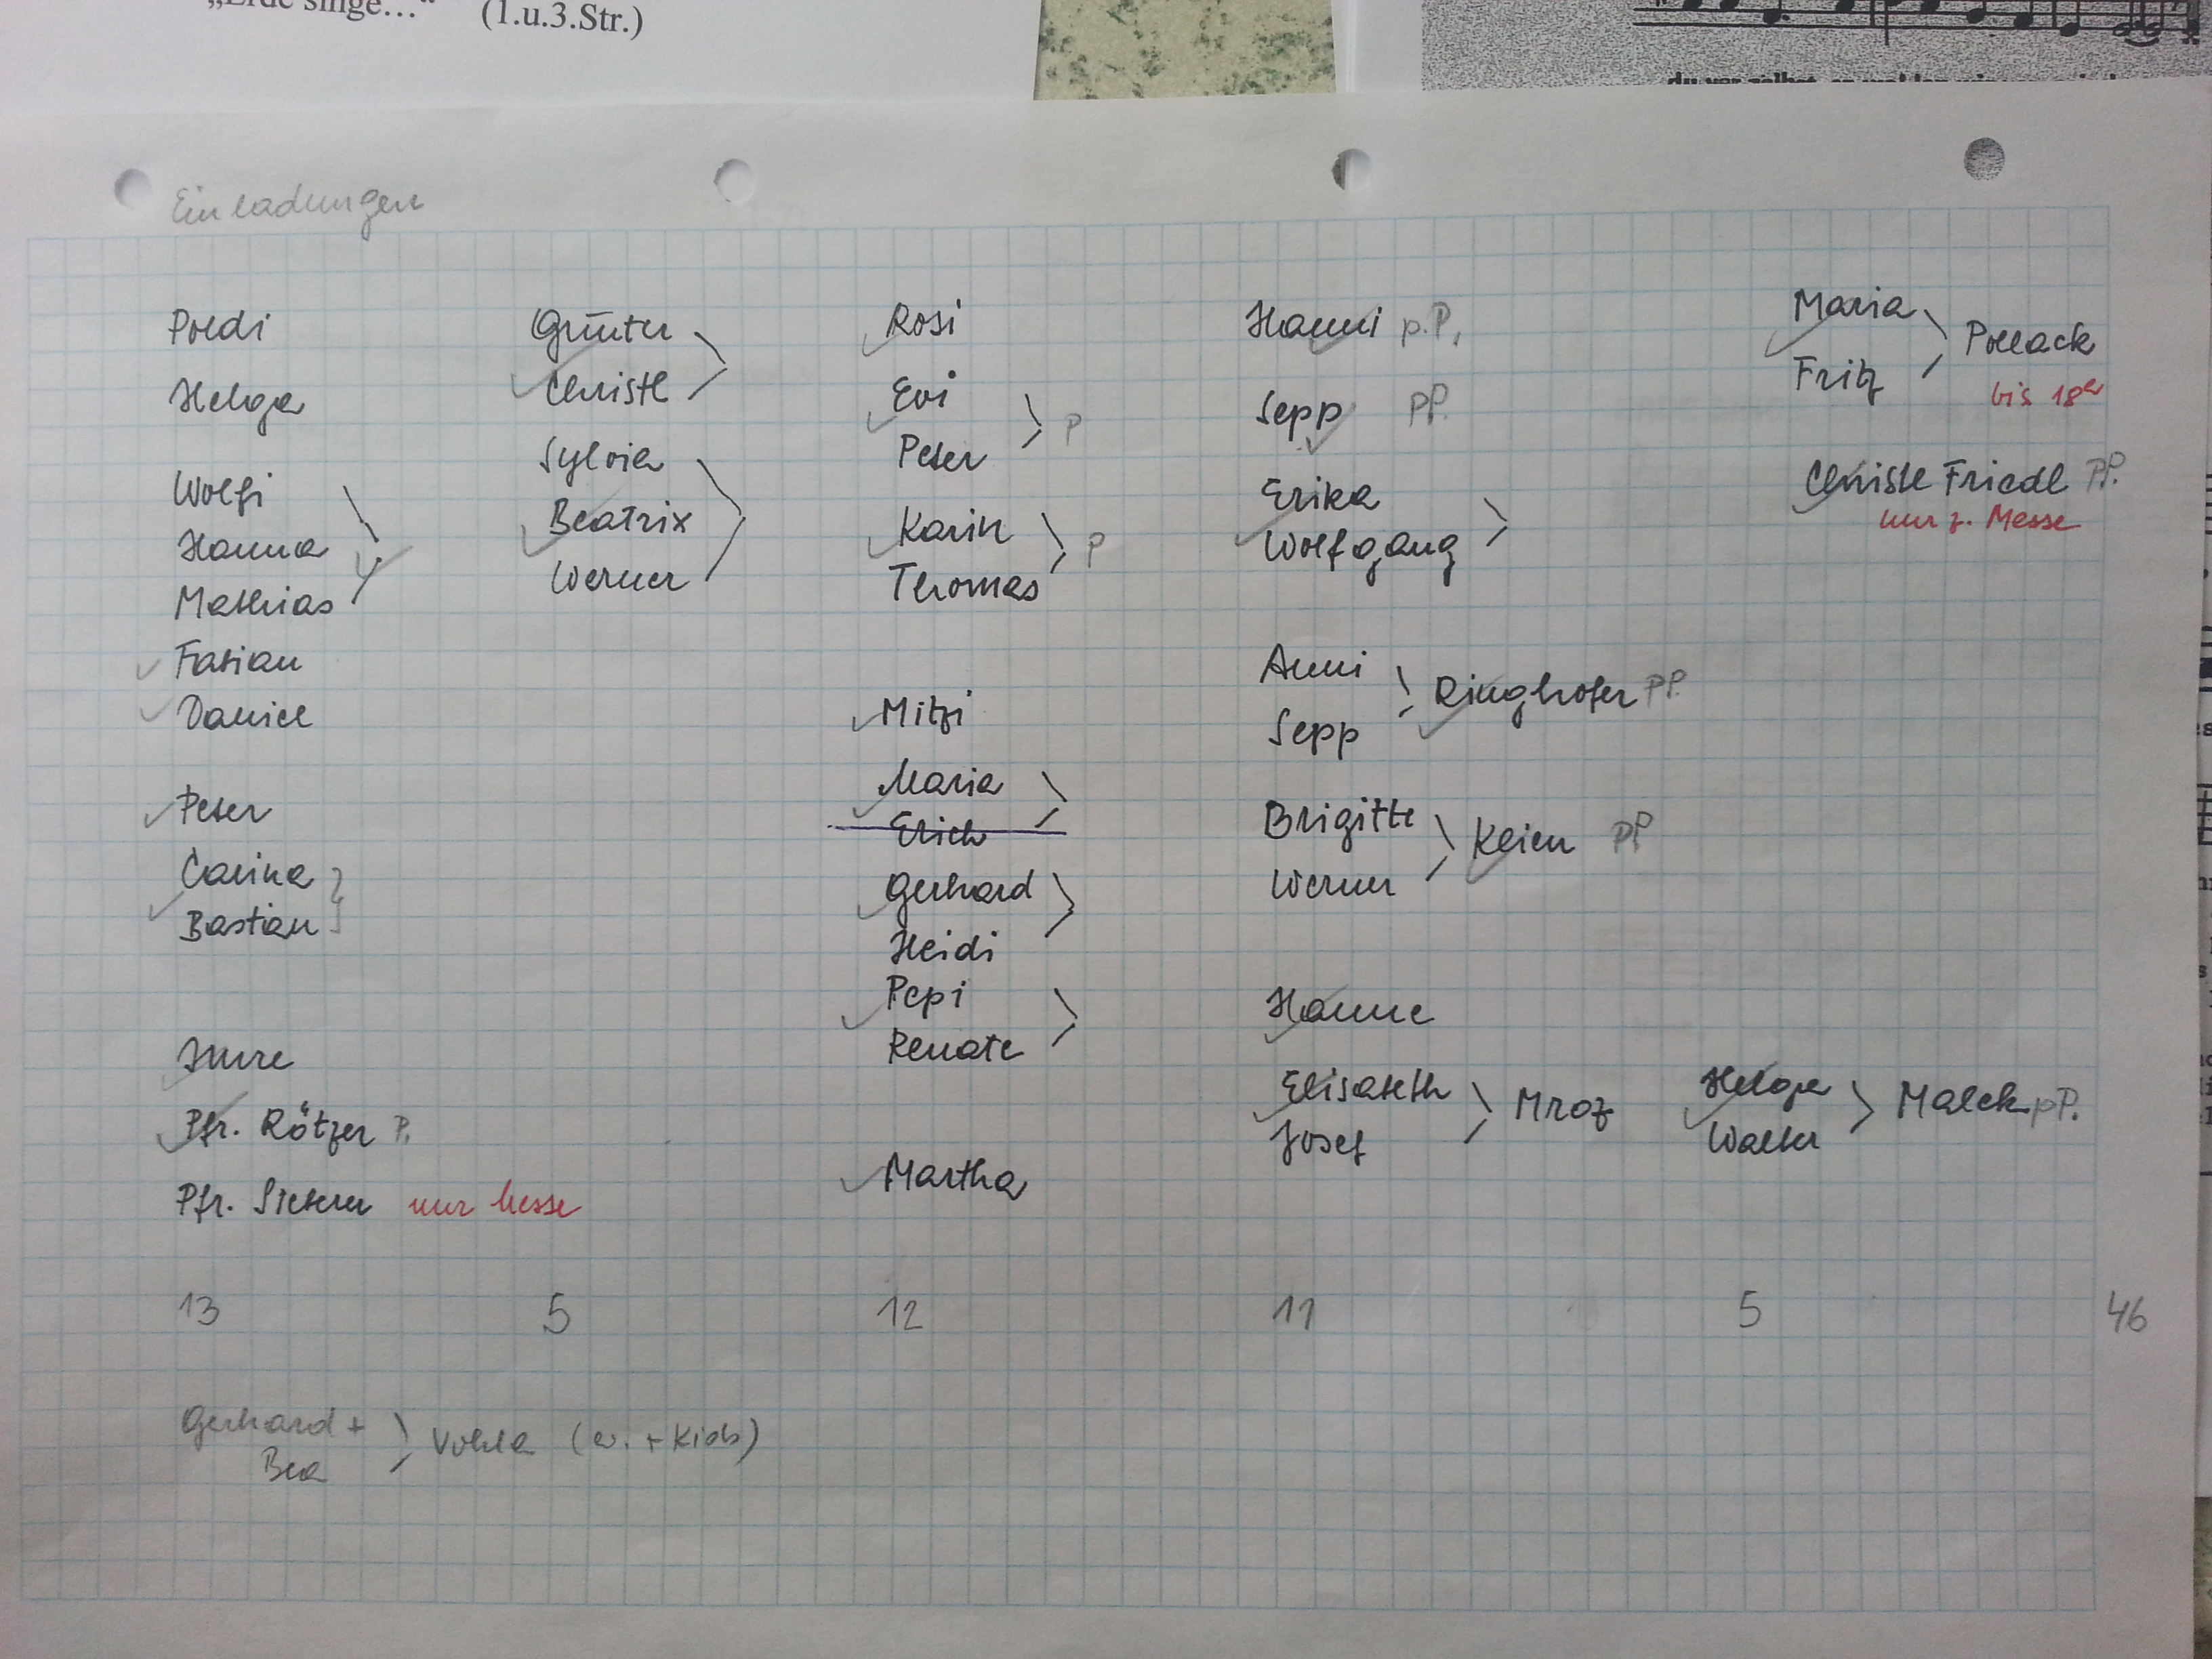 „Erde singe…“ (1.u.3.Str.)
Einladungen
Poldi
Helga
Wolfi
Hanna
Mathias
Fabian
Daniel
Peter
Carina
Bastian
Imre
Pfr. Rötzer P.
Pfr. Sieberer nur Messe
13
Gerhard +
Bea
(ev. + Kids)
Günter
Christl
Sylvia
Beatrix
Werner
5
Rosi
Evi
Peter P
Karin
Thomas P
Mitzi
Maria
Erich
Gerhard
Heidi
Pepi
Renate
Martha
12
Hanni p.P.
Sepp pP.
Erika
Wolfgang
Anni
Sepp
Ringhofer pP.
Brigitte
Werner
Klein pP
Hanne
Elisabeth
Josef
Mroz
11
Maria
Fritz
Pollack
bis 18h
Christl Friedl pP.
nur z. Messe
Helga
Walter
Malek pP.
5
46